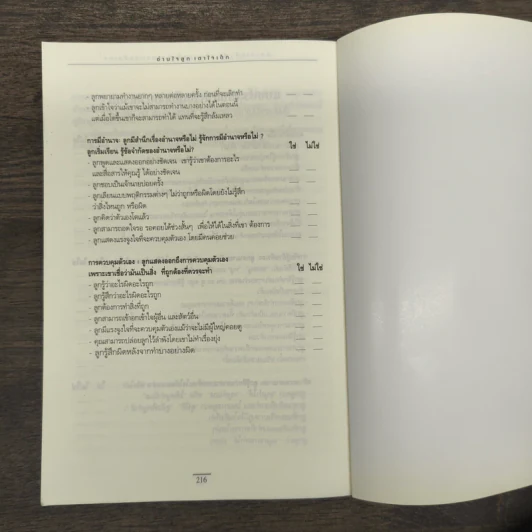 อ่านใจลูก เขาใจเด็ก
- ลูกพยายามทำงานยากๆ หลายต่อหลายครั้ง ก่อนที่จะเลิกทำ
- ลูกเข้าใจว่าแม้เขาจะไม่สามารถทำงานบางอย่างได้ในตอนนี้
แต่เมื่อโตขึ้นเขาก็จะสามารถทำได้ แทนที่จะรู้สึกล้มเหลว
การมีอำนาจ: ลูกมีสำนึกเรื่องอำนาจหรือไม่ รู้จักการมีอำนาจหรือไม่ ?
ลูกเริ่มเรียน รู้ข้อจำกัดของอำนาจหรือไม่? ใช่ ไม่ใช่
- ลูกพูดและแสดงออกอย่างชัดเจน เขารู้ว่าเขาต้องการอะไร
และสื่อสารให้คุณรู้ ได้อย่างชัดเจน
- ลูกชอบเป็นเจ้านายบ่อยครั้ง
- ลูกเลียนแบบพฤติกรรมต่างๆ ไม่ว่าถูกหรือผิดโดยยังไม่รู้สึก
ว่าสิ่งไหนถูก หรือผิด
- ลูกคิดว่าตัวเองโตแล้ว
- ลูกสามารถอดใจรอ รอคอยได้ช่วงสั้นๆ เพื่อให้ได้ในสิ่งที่เขา ต้องการ
- ลูกแสดงแรงจูงใจที่จะควบคุมตัวเอง โดยมีคนคอยช่วย
การควบคุมตัวเอง : ลูกแสดงออกถึงการควบคุมตัวเอง
เพราะเขาเชื่อว่ามันเป็นสิ่ง ที่ถูกต้องที่ควรจะทำ ใช่ ไม่ใช่
- ลูกรู้ว่าอะไรผิดอะไรถูก
- ลูกรู้สึกว่าอะไรผิดอะไรถูก
- ลูกต้องการทำสิ่งที่ถูก
- ลูกสามารถเข้าอกเข้าใจผู้อื่น และสัตว์อื่น
- ลูกมีแรงจูงใจที่จะควบคุมตัวเองแม้ว่าจะไม่มีผู้ใหญ่คอยดู
- คุณสามารถปล่อยลูกไว้ลำพังโดยเขาไม่ทำเรื่องยุ่ง
- ลูกรู้สึกผิดหลังจากทำบางอย่างผิด
216